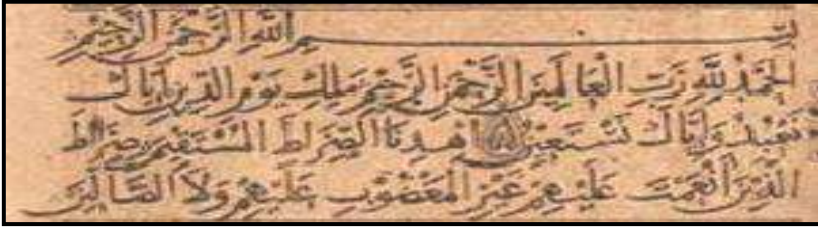 بسم الله الرحمن الرحيم
الحمد لله رب العالمين الرحمن الرحيم ملك يوم الدين اياك
نعبد واياك نستعين اهدنا الصراط المستقيم صراط
الذين انعمت عليهم غير المغضوب عليهم ولا الضالين